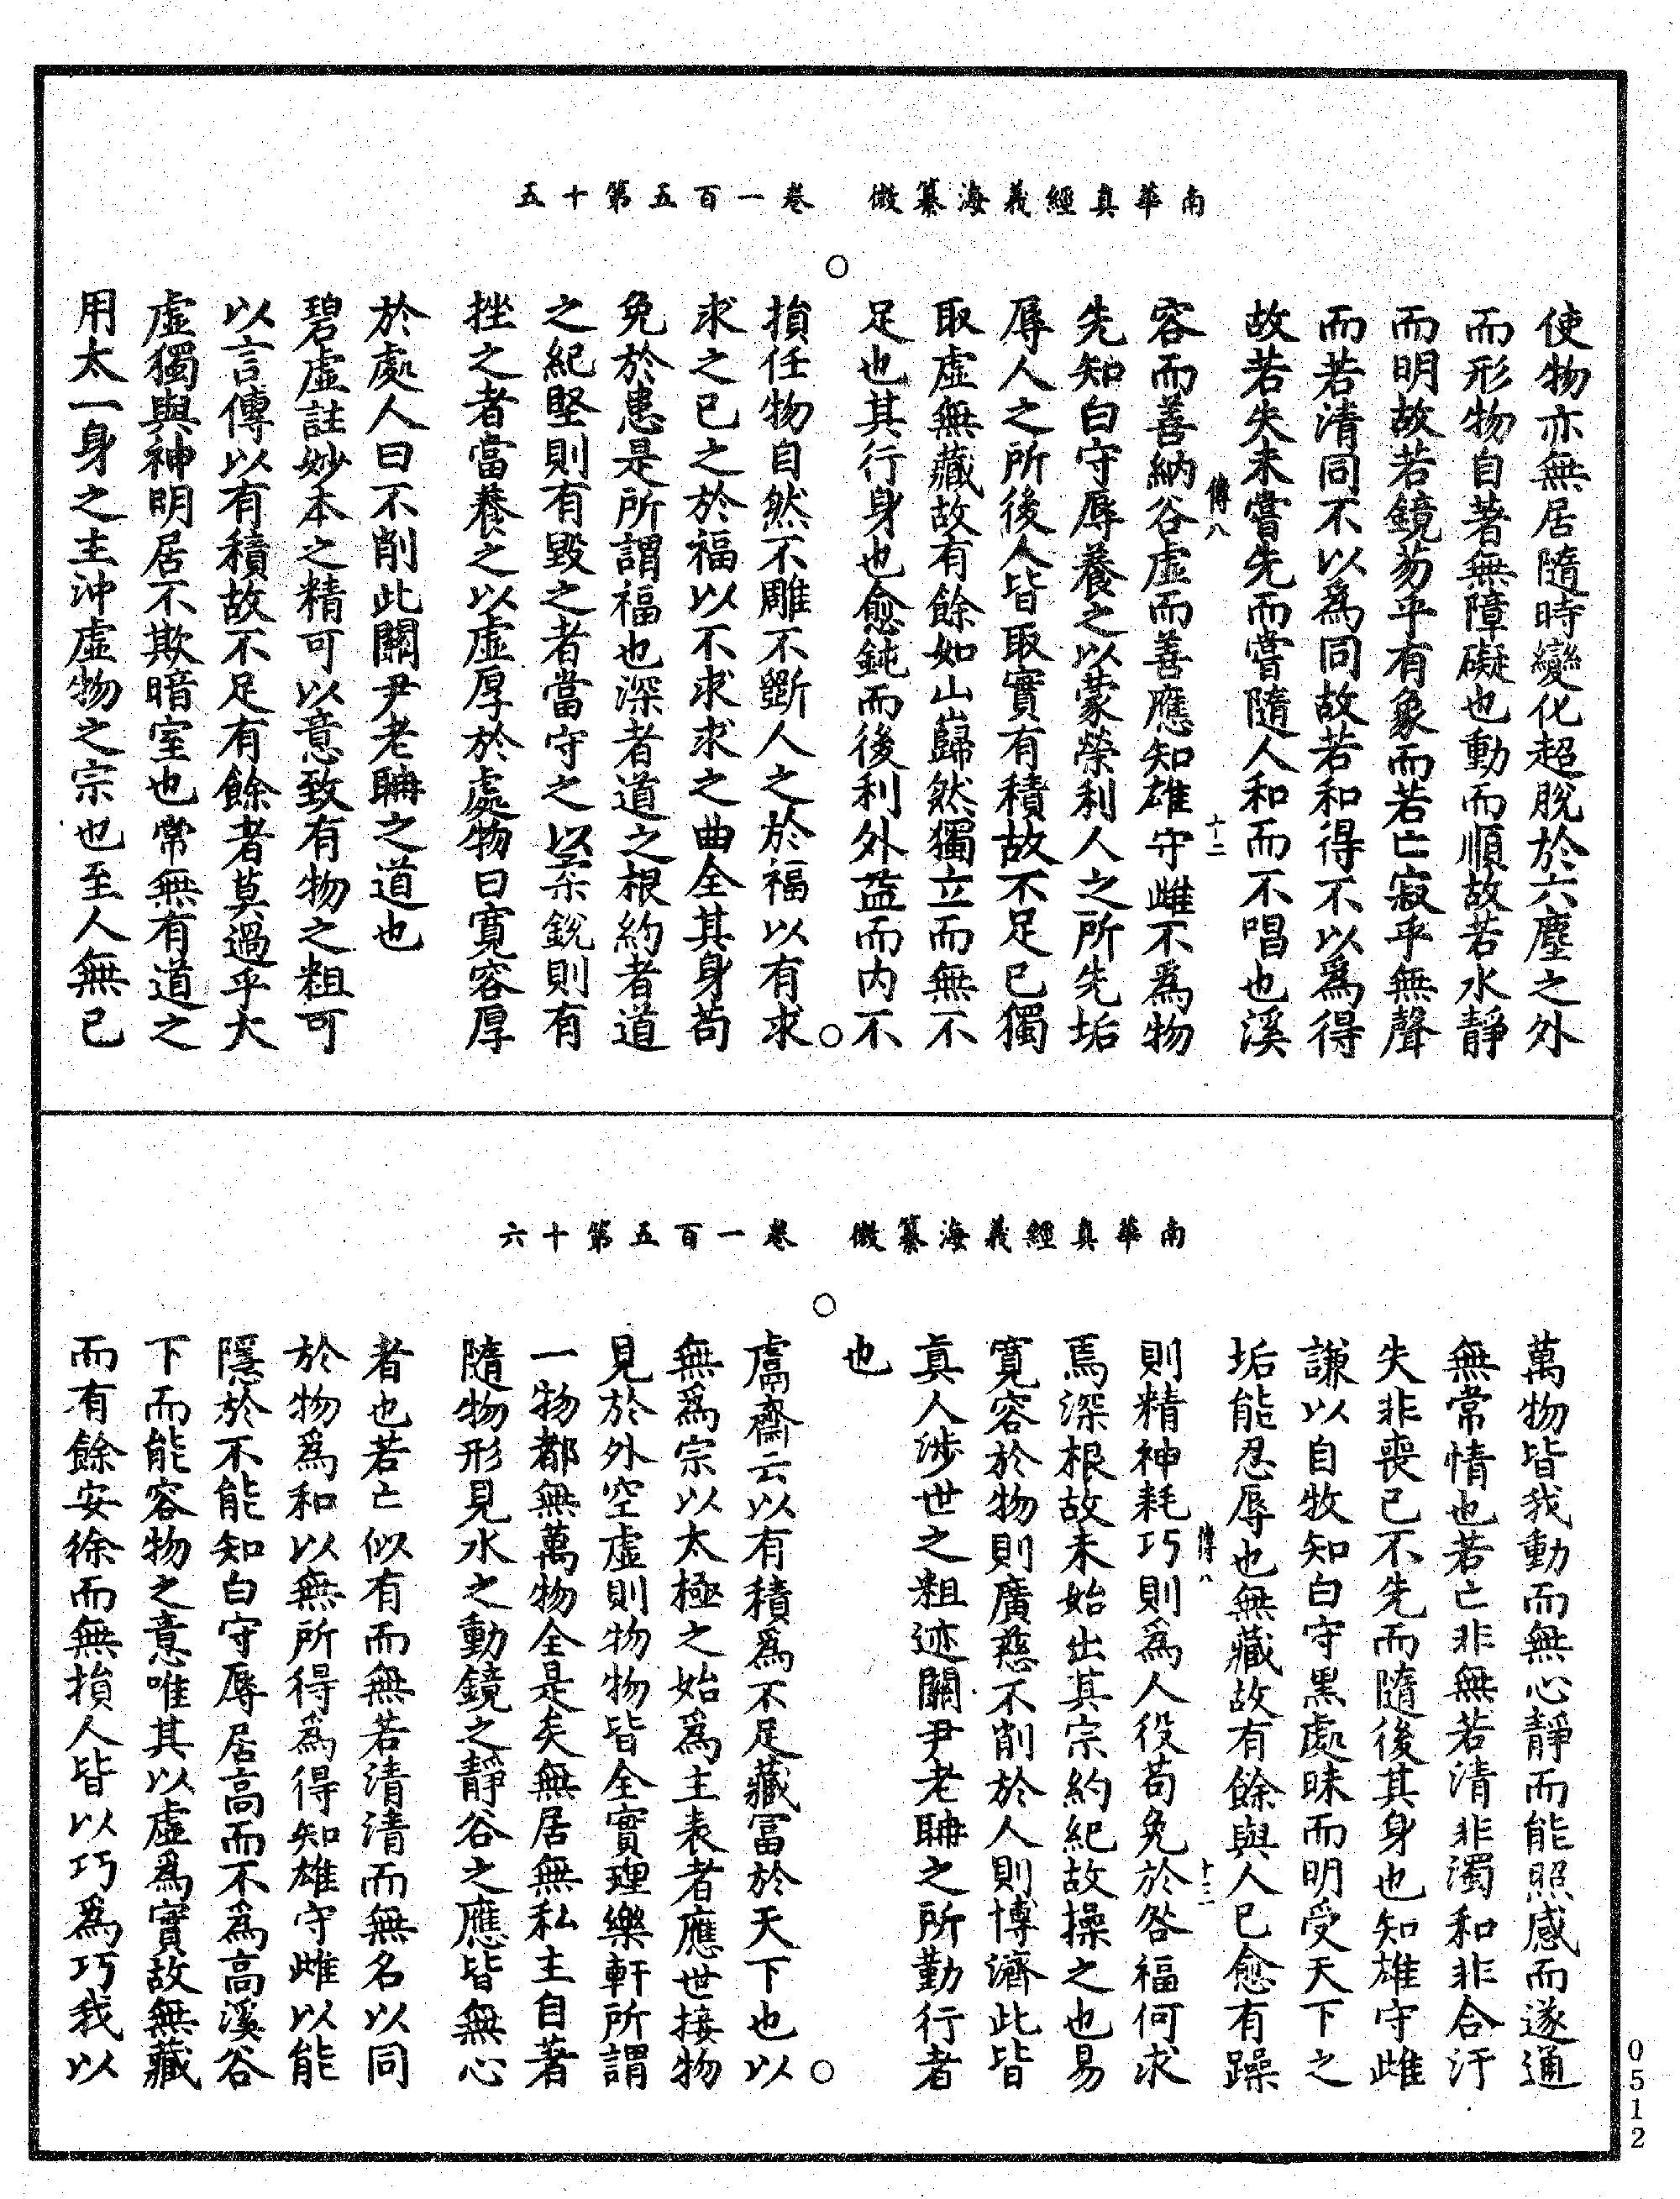 南華真經義海纂微　卷一百五第十五
使物亦無居隨時變化超脫於六塵之外
而形物自著無障礙也動而順故若水靜
而明故若鏡芴乎有象而若亡寂乎無聲
而若清同不以為同故若和得不以為得
故若失未嘗先而嘗隨人和而不唱也溪
傳八　十二
容而善納谷虛而善應知雄守雌不為物
先知白守辱養之以蒙榮利人之所先垢
辱人之所後人皆取實有積故不足已獨
取虛無藏故有餘如山巋然獨立而無不
足也其行身也愈鈍而後利外益而內不
損任物自然不雕不斲人之於福以有求
求之已之於福以不求求之曲全其身苟
免於患是所謂福也深者道之根約者道
之紀堅則有毀之者當守之以柔銳則有
挫之者當養之以虛厚於處物曰寬容厚
於處人曰不削此關尹老聃之道也
碧虛註妙本之精可以意致有物之粗可
以言傳以有積故不足有餘者莫過乎大
虛獨與神明居不欺暗室也常無有道之
用太一身之主沖虛物之宗也至人無己
南華真經義海纂微　卷一百五第十六
萬物皆我動而無心靜而能照感而遂通
無常情也若亡非無若清非濁和非合汙
失非喪己不先而隨後其身也知雄守雌
謙以自牧知白守黑處昧而明受天下之
垢能忍辱也無藏故有餘與人已愈有躁
則精神耗巧則為人役苟免於咎福何求
傳八　十三
焉深根故未始出其宗約紀故操之也易
寬容於物則廣慈不削於人則博濟此皆
真人涉世之粗迹關尹老聃之所勤行者
也
鬳齋云以有積為不足藏富於天下也以
無為宗以太極之始為主表者應世接物
見於外空虛則物物皆全實理樂軒所謂
一物都無萬物全是矣無居無私主自著
隨物形見水之動鏡之靜谷之應皆無心
者也若亡似有而無若清清而無名以同
於物為和以無所得為得知雄守雌以能
隱於不能知白守辱居高而不為高溪谷
下而能容物之意唯其以虛為實故無藏
而有餘安徐而無損人皆以巧為巧我以
0512